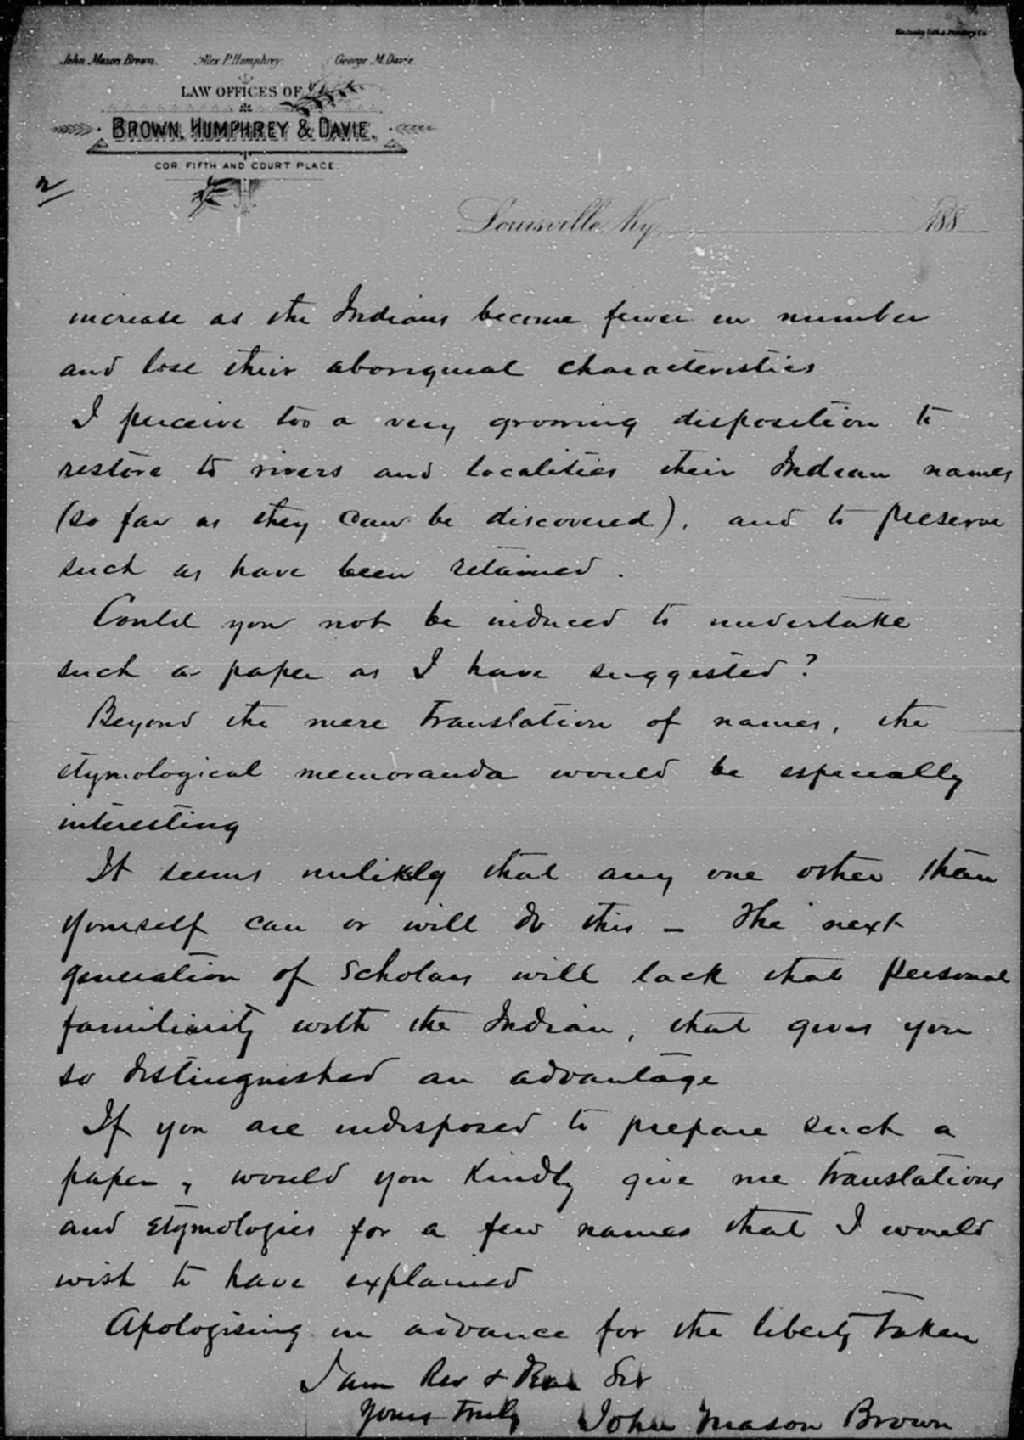 Kentucky Lith. & Printing Co.
John Mason Brown. Alex P. Humphrey. George M. Davie.
LAW OFFICES OF
BROWN, HUMPHREY & DAVIE,
COR. FIFTH AND COURT PLACE.
2
Louisville, Ky. 188
increase as the Indians become fewer in number
and lose their aboriginal characteristics
I perceive too a very growing disposition to
restore to rivers and localities their Indian names
(so far as they can be discovered), and to preserve
such as have been retained.
Could you not be induced to undertake
such a paper as I have suggested?
Beyond the mere translation of names, the
etymological memoranda would be especially
interesting
It seems unlikely that any one other than
yourself can or will do this - The next
generation of Scholars will lack that personal
familiarity with the Indian, that gives you
so distinguished an advantage
If you are indisposed to prepare such a
paper, would you kindly give me translations
and etymologies for a few names that I would
wish to have explained
Apologising in advance for the liberty taken
I am Rev & Dear Sir
Yours truly John Mason Brown